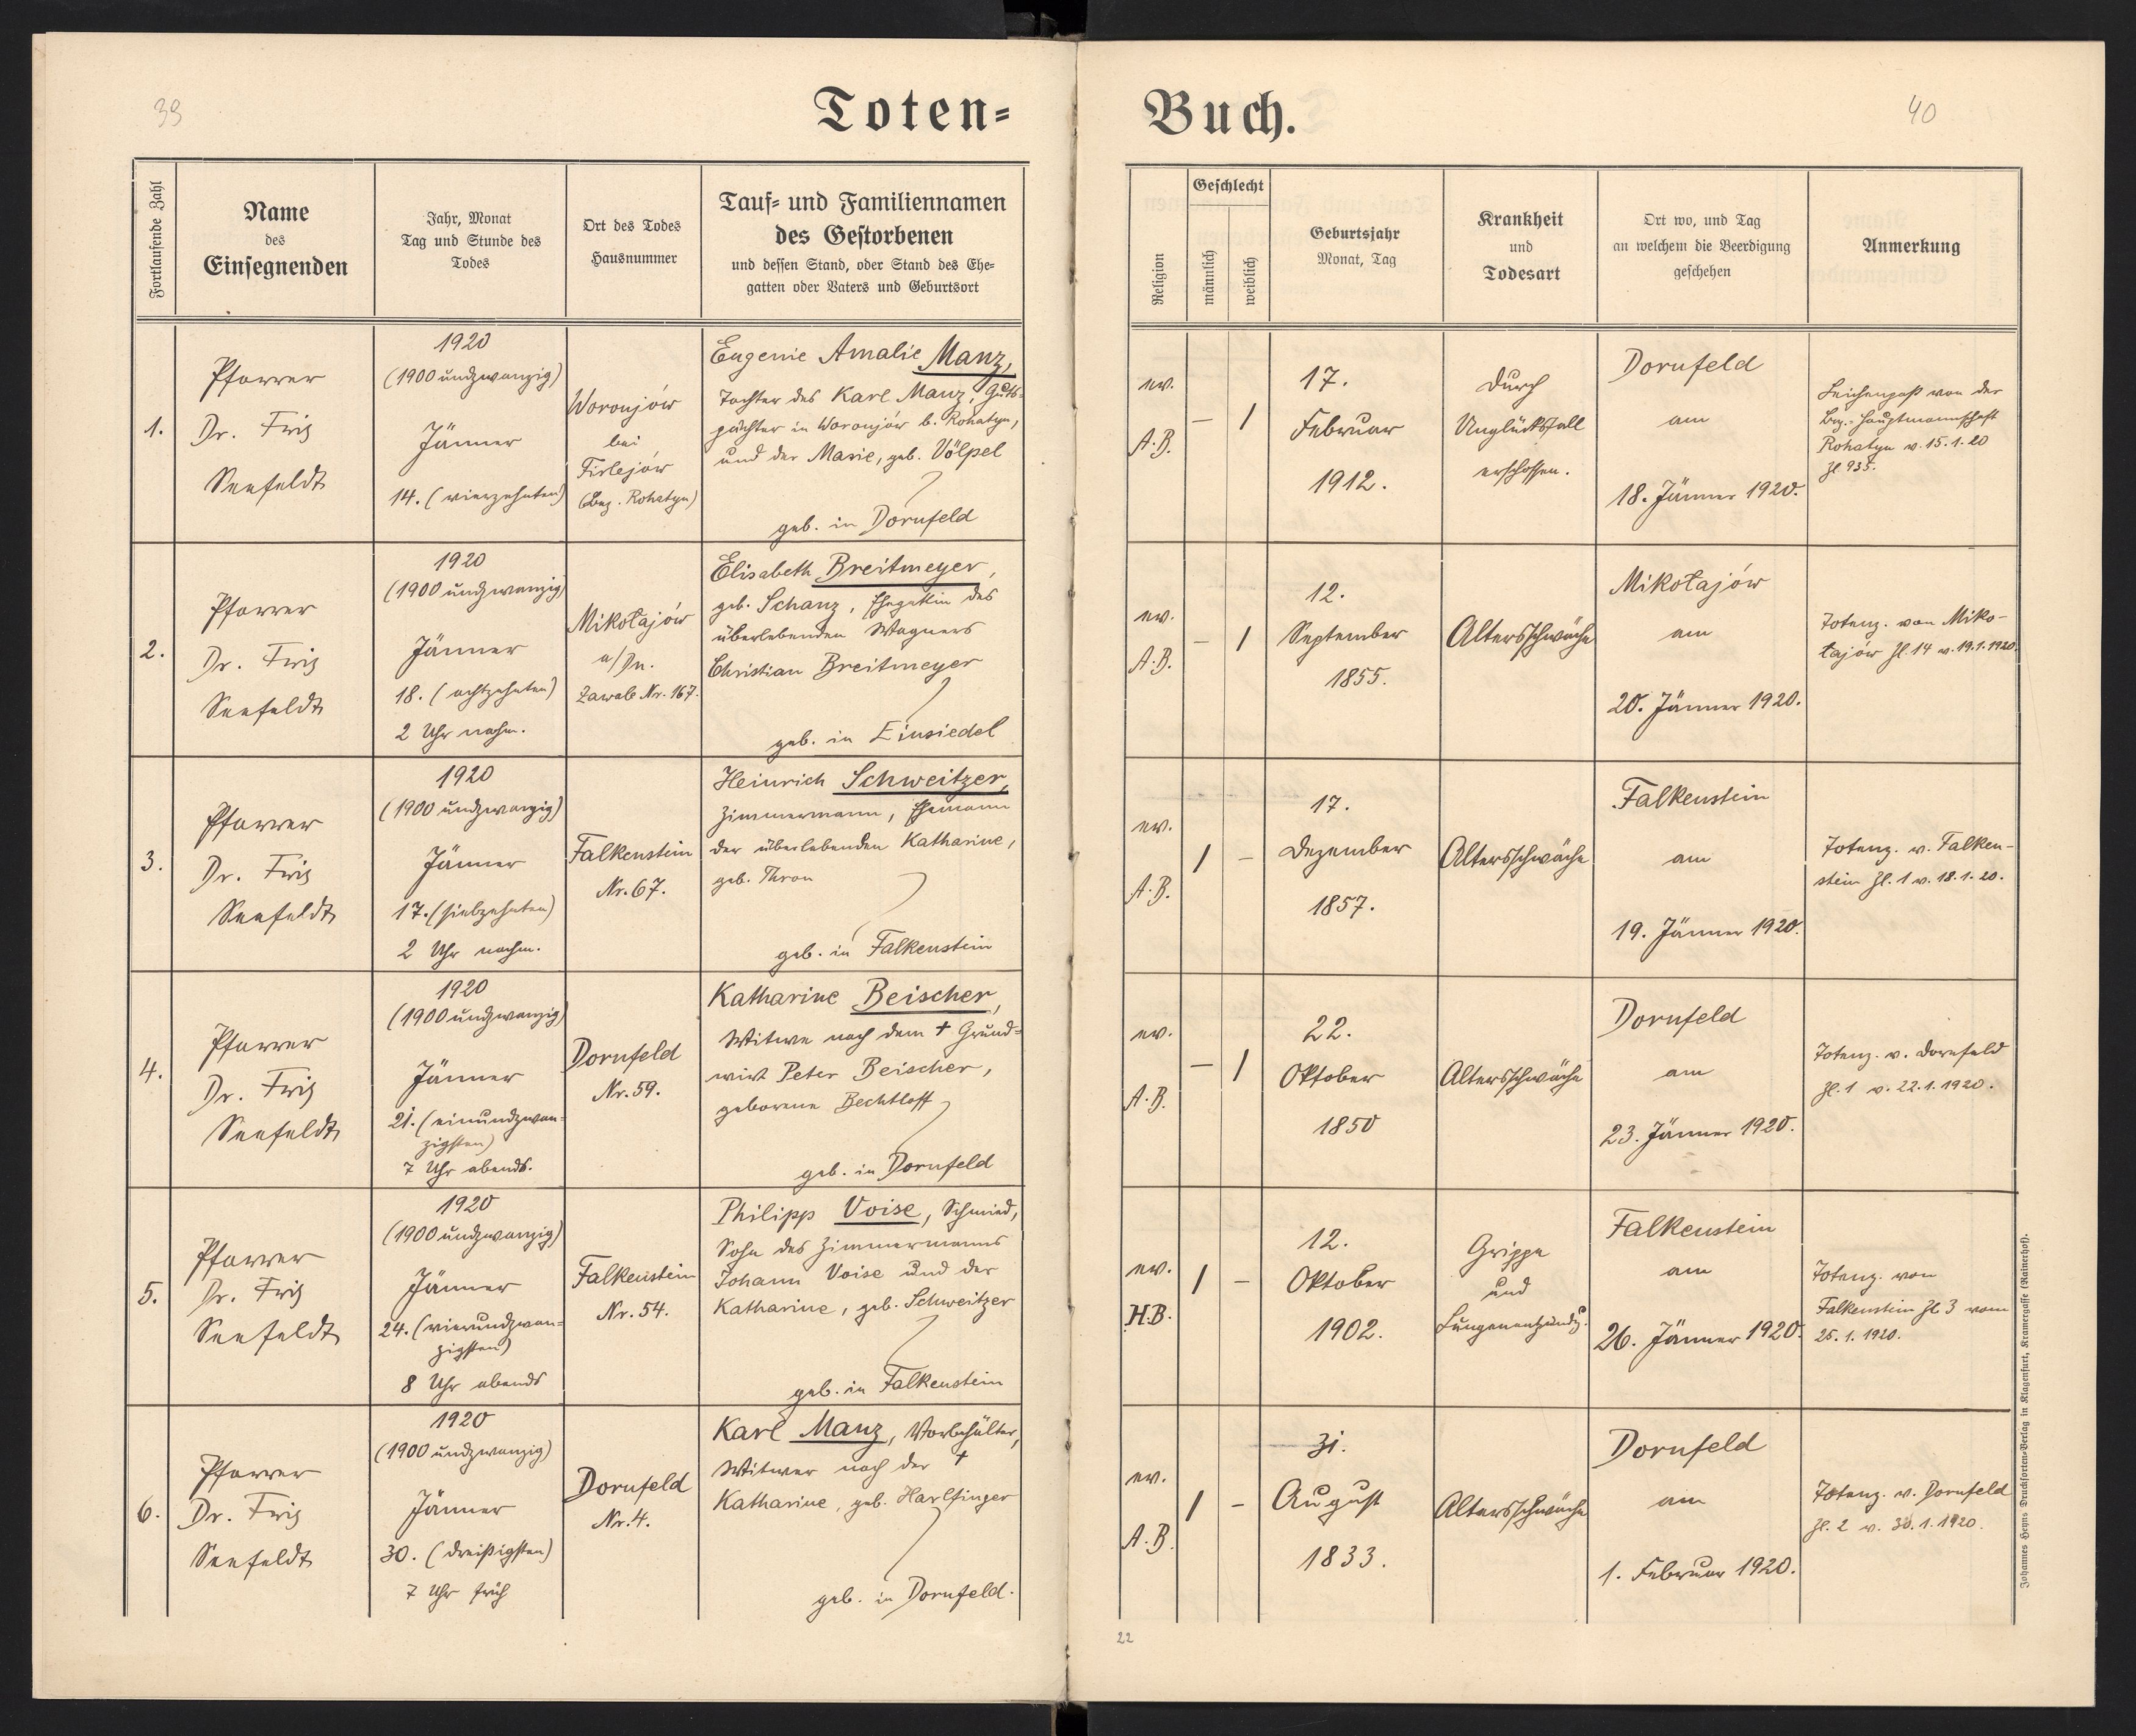 39
Toten=
Fortlaufende Zahl
Name
des
Einsegnenden
Jahr, Monat
Tag und Stunde des
Todes
Ort des Todes
Hausnummer
Tauf= und Familiennamen
des Gestorbenen
und dessen Stand, oder Stand des Ehe=
gatten oder Vaters und Geburtsort
1.
Pfarrer
Dr. Friz
Seefeldt
1920
(1900 undzwanzig)
Jänner
14. (vierzehnten)
Woronjów
bei
Firlejów
(Bez. Rohatyn)
Eugenie Amalie Manz,
Tochter des Karl Manz, Guts-
pächter in Woronjów b. Rohatyn,
und der Marie, geb. Völpel
geb. in Dornfeld
2.
Pfarrer
Dr. Friz
Seefeldt
1920
(1900 undzwanzig)
Jänner
18. (achtzehnten)
2 Uhr nachm.
Mikołajów
a/Dn.
Zawale Nr. 167.
Elisabeth Breitmeyer,
geb. Schanz, Ehegattin des
überlebenden Wagners
Christian Breitmeyer
geb. in Einsiedel
3.
Pfarrer
Dr. Friz
Seefeldt
1920
(1900 undzwanzig)
Jänner
17. (siebzehnten)
2 Uhr nachm.
Falkenstein
Nr. 67.
Heinrich Schweitzer,
Zimmermann, Ehemann
der überlebenden Katharine,
geb. Thron
geb. in Falkenstein
4.
Pfarrer
Dr. Friz
Seefeldt
1920
(1900 undzwanzig)
Jänner
21. (einundzwan-
zigsten)
7 Uhr abends.
Dornfeld
Nr. 59.
Katharine Beischer,
Witwe nach dem † Grund=
wirt Peter Beischer,
geborene Bechtloff
geb. in Dornfeld
5.
Pfarrer
Dr. Friz
Seefeldt
1920
(1900 undzwanzig)
Jänner
24. (vierundzwan=
zigsten)
8 Uhr abends
Falkenstein
Nr. 54.
Philipp Voise, Schmied,
Sohn des Zimmermanns
Johann Voise und der
Katharine, geb. Schweitzer
geb. in Falkenstein
6.
Pfarrer
Dr. Friz
Seefeldt
1920
(1900 undzwanzig)
Jänner
30. (dreißigsten)
7 Uhr früh
Dornfeld
Nr. 4.
Karl Manz, Vorbehälter,
Witwer nach der †
Katharine, geb. Harlfinger
geb. in Dornfeld.
Buch.
40
Religion
Geschlecht
männlich
weiblich
Geburtsjahr
Monat, Tag
Krankheit
und
Todesart
Ort wo, und Tag
an welchem die Beerdigung
geschehen
Anmerkung
ev.
A.B.
– 1
17.
Februar
1912.
Durch
Unglücksfall
erschossen.
Dornfeld
am
18. Jänner 1920.
Leichenpaß von der
Bez.-Hauptmannschaft
Rohatyn v. 15.1.20
Zl. 935.
ev.
A.B.
– 1
12.
September
1855.
Altersschwäche
Mikołajów
am
20. Jänner 1920.
Totenz. von Miko-
łajów Zl. 14 v. 19.1.1920.
ev.
A.B.
1 –
17.
Dezember
1857.
Altersschwäche
Falkenstein
am
19. Jänner 1920.
Totenz. v. Falken-
stein Zl. 1 v. 18.1.20.
ev.
A.B.
– 1
22.
Oktober
1850
Altersschwäche
Dornfeld
am
23. Jänner 1920.
Totenz. v. Dornfeld
Zl. 1 v. 22.1.1920.
ev.
H.B.
1 –
12.
Oktober
1902.
Grippe
und
Lungenentzündg.
Falkenstein
am
26. Jänner 1920.
Totenz. von
Falkenstein Zl 3 vom
25.1.1920.
ev.
A.B.
1 –
31.
August
1833.
Altersschwäche
Dornfeld
am
1. Februar 1920.
Totenz. v. Dornfeld
Zl. 2 v. 30.1.1920.
Johannes Heyns Drucksorten=Verlag in Klagenfurt, Kramergasse (Rainerhof).
22